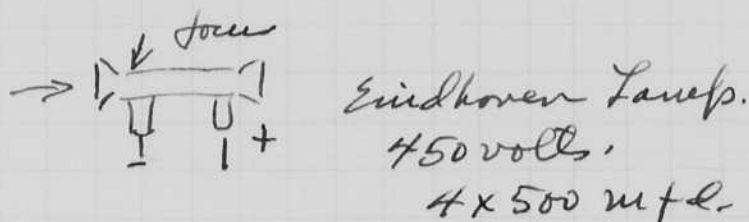 focus
Eindhoven Lamps.
450 volts.
4 x 500 mfd.
- +